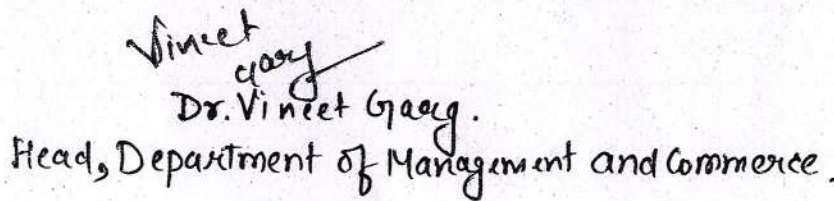 Vineet
garg
Dr. Vineet Garg.
Head, Department of Management and Commerce.